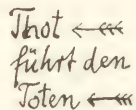 Thot
führt den
Toten